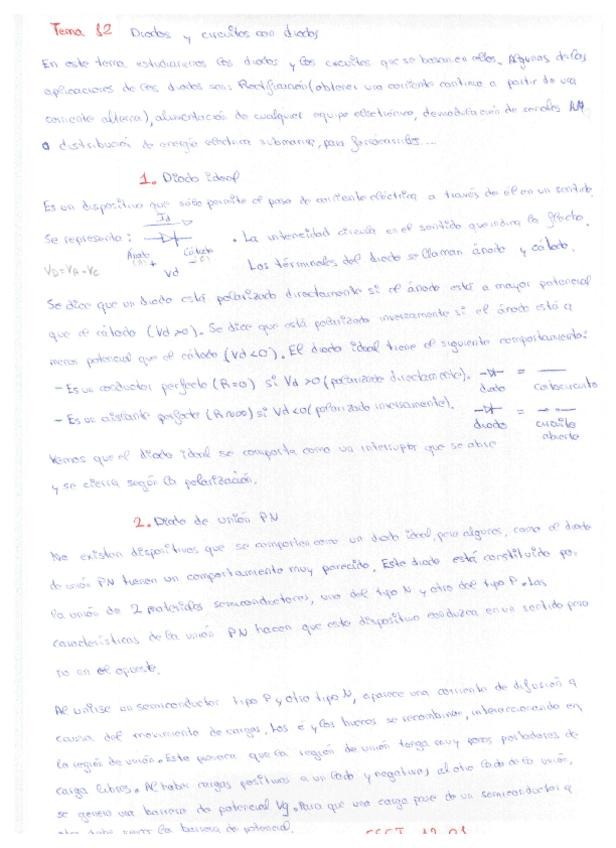 Tema 12 Diodos y circuitos con diodos
En este tema estudiaremos los diodos y los circuitos que se basan en ellos. Algunas de las
aplicaciones de los diodos son: Rectificación (obtener una corriente continua a partir de una
corriente alterna), alimentación de cualquier equipo electrónico, demodulación de señales AM
o distribución de energía eléctrica submarina, para ferrocarriles...
1. Diodo ideal
Es un dispositivo que sólo permite el paso de corriente eléctrica a través de él en un sentido.
Id
Se representa: . La intensidad circula en el sentido que indica la flecha.
Ánodo (A) + Cátodo - (C)
VD = VA - VC Vd Los términales del diodo se llaman ánodo y cátodo.
Se dice que un diodo está polarizado directamente si el ánodo está a mayor potencial
que el cátodo (Vd>0). Se dice que está polarizado inversamente si el ánodo está a
menos potencial que el cátodo (Vd<0). El diodo ideal tiene el siguiente comportamiento:
- Es un conductor perfecto (R=0) si Vd>0 (polarizado directamente). =
diodo cortocircuito
- Es un aislante perfecto (R=∞) si Vd<0 (polarizado inversamente). =
diodo circuito
abierto
Vemos que el diodo ideal se comporta como un interruptor que se abre
y se cierra según la polarización.
2. Diodo de unión PN
No existen dispositivos que se comporten como un diodo ideal, pero algunos, como el diodo
de unión PN tienen un comportamiento muy parecido. Este diodo está constituido por
la unión de 2 materiales semiconductores, uno del tipo N y otro del tipo P. Las
características de la unión PN hacen que este dispositivo conduzca en un sentido pero
no en el opuesto.
Al unirse un semiconductor tipo P y otro tipo N, aparece una corriente de difusión a
causa del movimiento de cargas. Los é y los huecos se recombinan, interaccionando en
la región de unión. Esto provoca que la región de unión tenga muy pocos portadores de
carga libres. Al haber cargas positivas a un lado y negativas al otro lado de la unión,
se genera una barrera de potencial Vg. Para que una carga pase de un semiconductor a
otro debe la barrera de potencial.